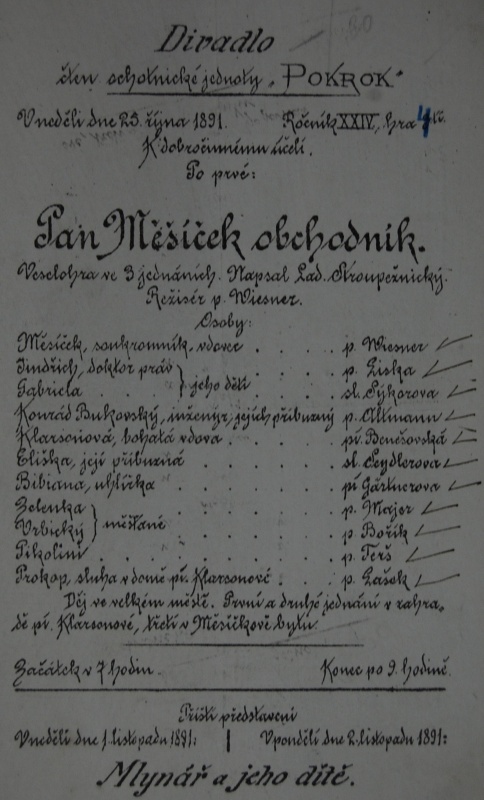 Divadlo
čten. ochotnické jednoty „POKROK“
V neděli dne 25. října 1891. Ročník XXIV, hra 4tá.
K dobročinnému účeli.
Po prvé:
Pan Měsíček obchodník.
Veselohra ve 3 jednáních. Napsal Lad. Stroupežnický.
Režisér p. Wiesner.
Osoby:
Měsíček, soukromník, vdovec . . . . . p. Wiesner
Jindřich, doktor práv } jeho děti . . . . p. Liska
Gabriela . . } . . . . sl. Sýkorova
Konrád Bukovský, inženýr, jejich příbuzný p. Altmann
Klarsonová, bohatá vdova . . . . . pí. Benešovská
Eliška, její příbuzná . . . . . sl. Seydlerova
Bibiana, uhlířka . . . . . pí Gärtnerova
Zelenka } měšťané . . . . . p. Majer
Vrbický } . . . . . p. Bořík
Pikolini . . . . . p. Terš
Prokop, sluha v domě pí. Klarsonové . . . p. Lašek
Děj ve velkém městě. První a druhé jednání v zahra-
dě pí. Klarsonové, třetí v Měsíčkově bytu.
Začátek v 7 hodin. Konec po 9. hodině.
Příští představení
V neděli dne 1. listopadu 1891: | V pondělí dne 2. listopadu 1891:
Mlynář a jeho dítě.